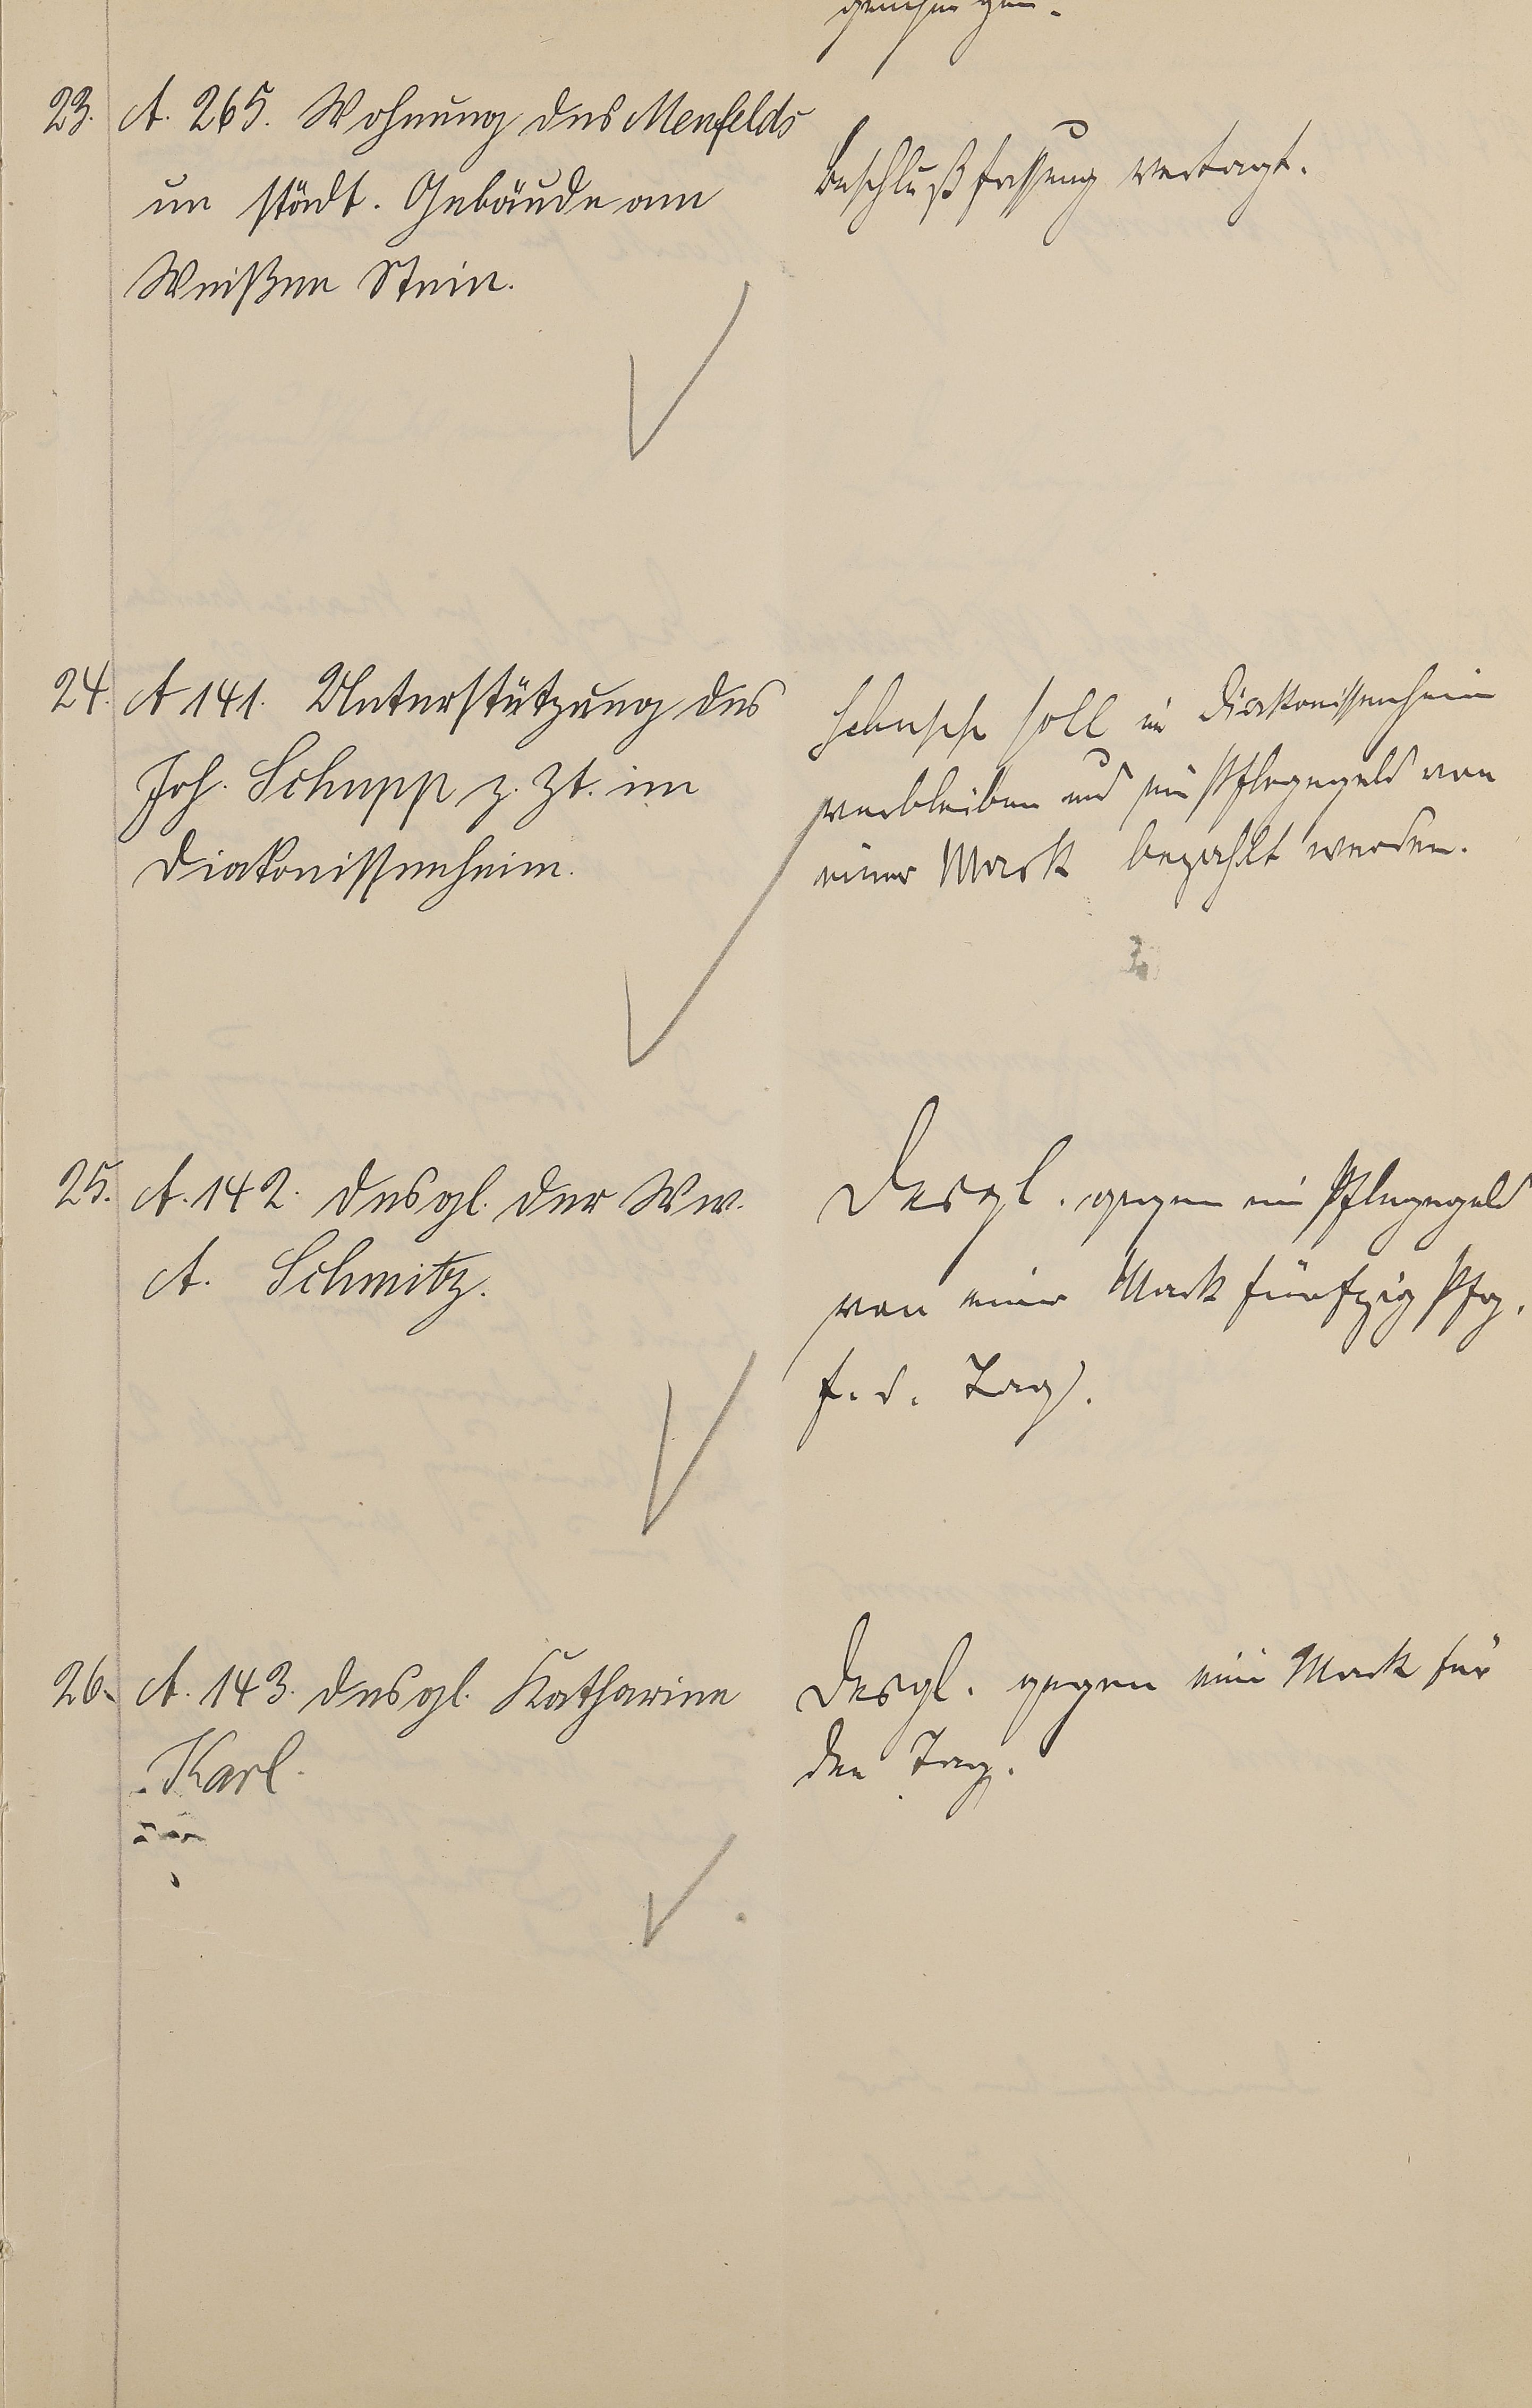 23. A. 265. Wohnung des Menfelds
im städt. Gebäude am
Weißen Stein.
Beschlußfassung vertagt.
24. A 141. Unterstützung des
Joh. Schupp z. Zt. im
Diakonissenheim.
Schupp soll im Diakonissenheim
verbleiben und ein Pflegegeld von
einer Mark bezahlt werden.
25. A. 142. desgl. der Ww.
A. Schmitz.
Desgl. gegen ein Pflegegeld
von einer Mark fünfzig Pfg.
f. d. Tag.
26. A. 143. desgl. Katharina
Karl.
Desgl. gegen eine Mark für
den Tag.